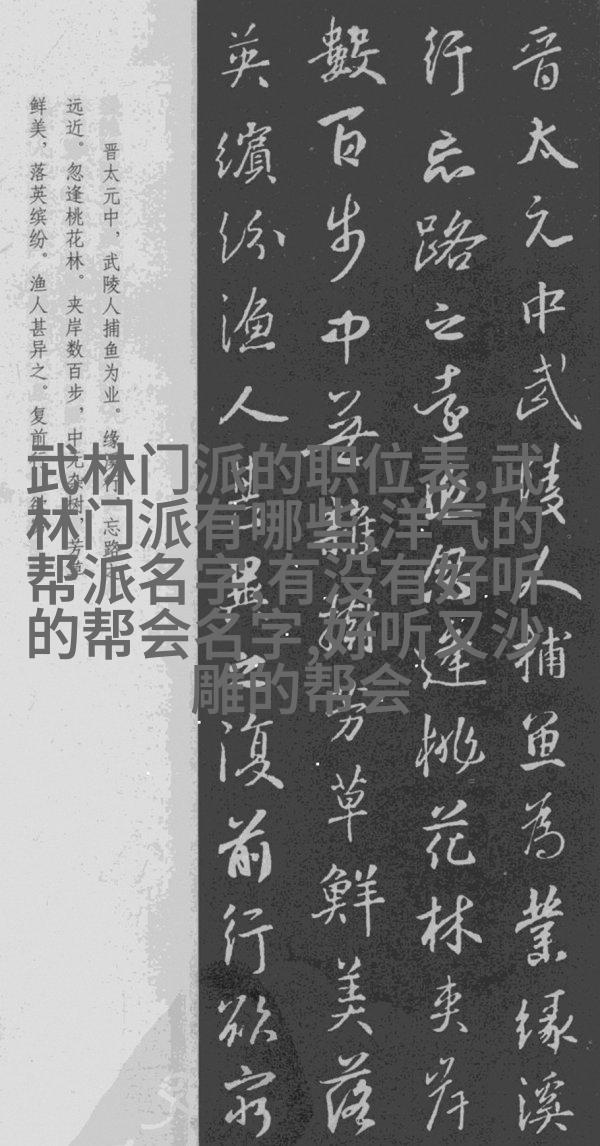 晉太元中武陵人捕魚為業緣溪
行忘路之遠近忽逢桃花林夾岸
數百步中無雜樹芳草鮮美落
英繽紛漁人甚異之復前行欲窮
晋太元中，武陵人捕鱼为业。缘溪行，忘路
远近。忽逢桃花林。夹岸数百步，中无杂树，芳草
鲜美，落英缤纷。渔人甚异之。复前行
武林门派的职位表,武
林门派有哪些,洋气的
帮派名字,有没有好听
的帮会名字,好听又沙
雕的帮会